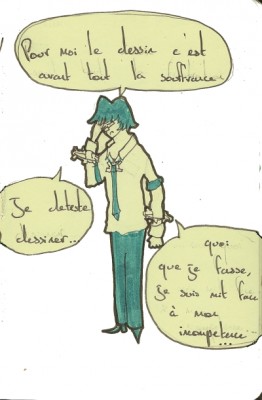 Pour moi le dessin c'est
avant tout la souffrance
Je deteste
dessiner...
quoi
que je fasse,
je suis mit face
à mon
incompetence
...